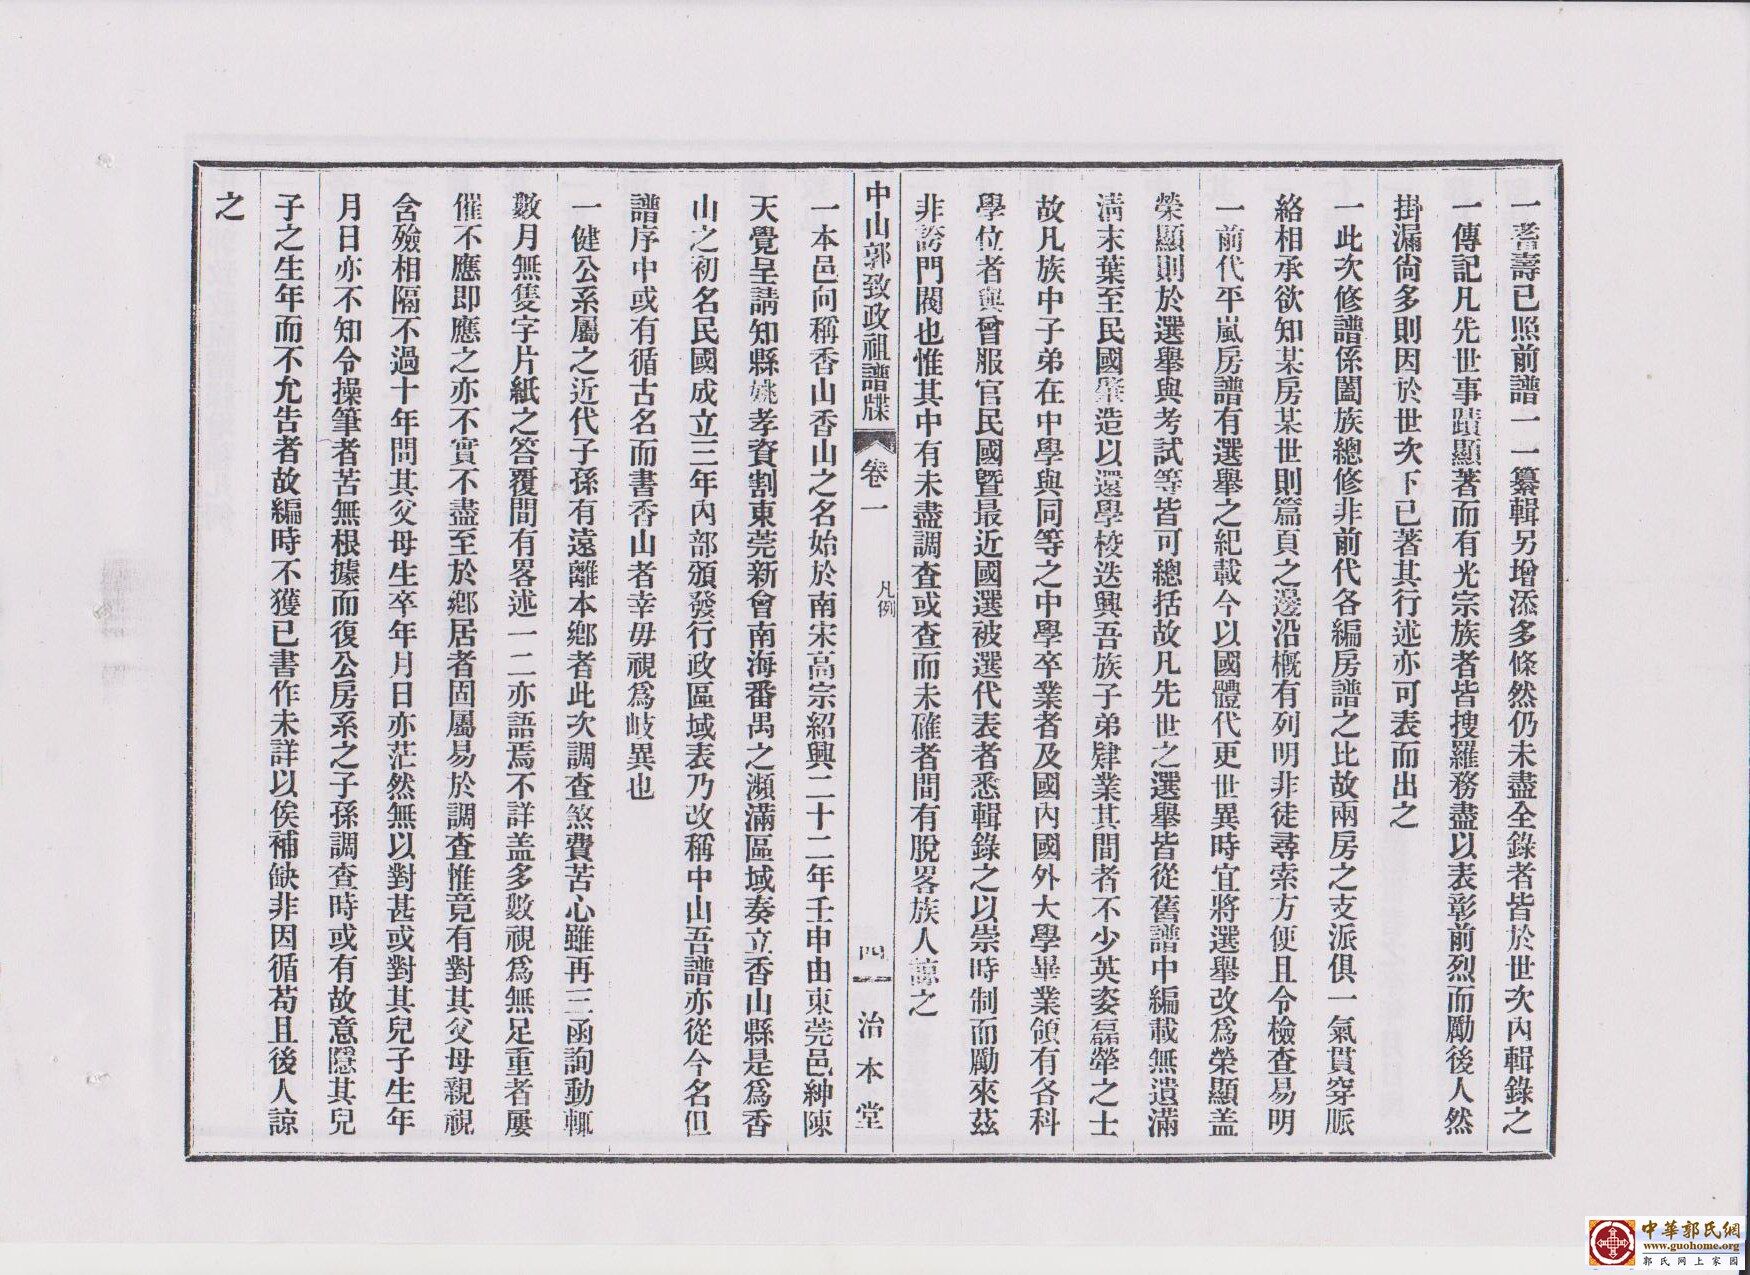 一耆壽已照前譜一一纂輯另增添多條然仍未盡全錄者皆於世次內輯錄之
一傳記凡先世事蹟顯著而有光宗族者皆搜羅務盡以表彰前烈而勵後人然
掛漏尙多則因於世次下已著其行述亦可表而出之
一此次修譜係闔族總修非前代各編房譜之比故兩房之支派俱一氣貫穿脈
絡相承欲知某房某世則篇頁之邊沿概有列明非徒尋索方便且令檢查易明
一前代平嵐房譜有選舉之紀載今以國體代更世異時宜將選舉改爲榮顯盖
榮顯則於選舉與考試等皆可總括故凡先世之選舉皆從舊譜中編載無遺滿
淸末葉至民國肇造以還學校迭興吾族子弟肄業其間者不少英姿磊犖之士
故凡族中子弟在中學與同等之中學卒業者及國內國外大學畢業領有各科
學位者與曾服官民國暨最近國選被選代表者悉輯錄之以崇時制而勵來茲
非誇門閥也惟其中有未盡調查或查而未確者間有脫畧族人諒之
中山郭致政祖譜牒
卷一
凡例
四
治本堂
一本邑向稱香山香山之名始於南宋高宗紹興二十二年壬申由東莞邑紳陳
天覺呈請知縣姚孝資割東莞新會南海番禺之瀕滿區域奏立香山縣是爲香
山之初名民國成立三年內部頒發行政區域表乃改稱中山吾譜亦從今名但
譜序中或有循古名而書香山者幸毋視爲岐異也
一健公系屬之近代子孫有遠離本鄉者此次調查煞費苦心雖再三函詢動輒
數月無隻字片紙之答覆間有畧述一二亦語焉不詳盖多數視爲無足重者屢
催不應即應之亦不實不盡至於鄉居者固屬易於調查惟竟有對其父母親視
含殮相隔不過十年間其父母生卒年月日亦茫然無以對甚或對其兒子生年
月日亦不知令操筆者苦無根據而復公房系之子孫調查時或有故意隱其兒
子之生年而不允告者故編時不獲已書作未詳以俟補缺非因循苟且後人諒
之
中華郭氏網
www.guohome.org
郭氏网上家园